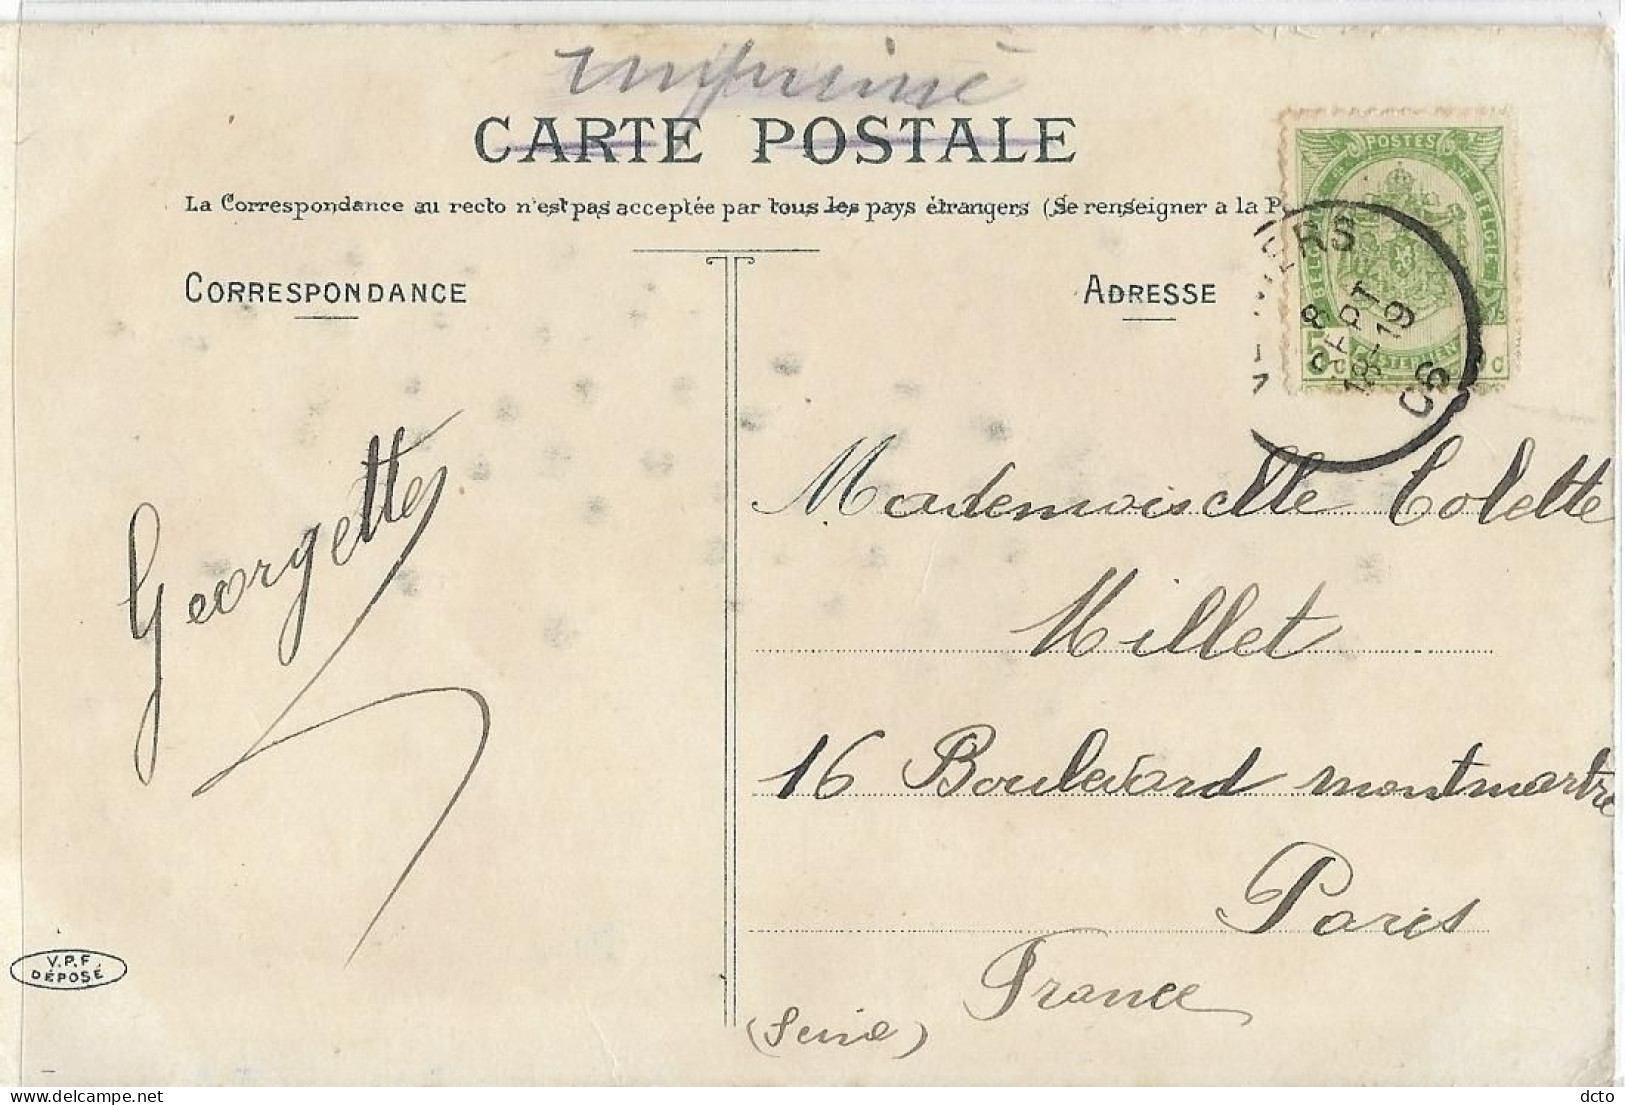 imprimé
CARTE POSTALE
La Correspondance au recto n'est pas acceptée par tous les pays étrangers (Se renseigner a la P
CORRESPONDANCE
ADRESSE
POSTES
BELGIE
8
SEPT
18-19
06
5
C
Georgette
Mademoiselle Colette
Millet
16 Boulevard montmartre
Paris
France
(Seine)
V.P.F
DÉPOSÉ
dcto